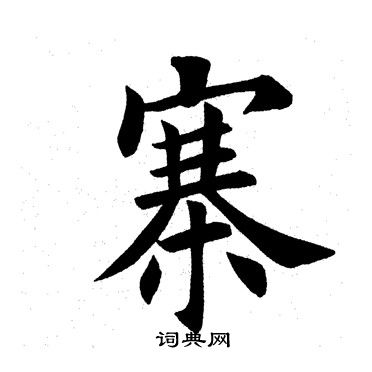 寨
词典网